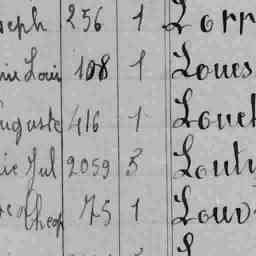 seph 256 1 Lorr
nie Loui 108 1 Loues
uguste 416 1 Louet
ie Jul 2059 3 Louty
75 1 Louv